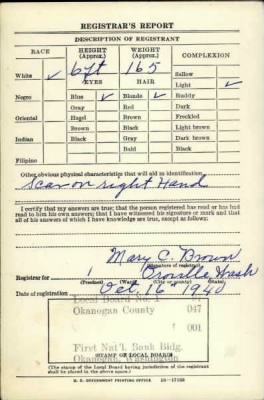 REGISTRAR'S REPORT
DESCRIPTION OF REGISTRANT
RACE HEIGHT (Approx.) WEIGHT (Approx.) COMPLEXION
White ✓ 6 ft 165 Sallow
EYES HAIR Light ✓
Negro Blue ✓ Blonde ✓ Ruddy
Gray Red Dark
Oriental Hazel Brown Freckled
Brown Black Light brown
Indian Black Gray Dark brown
Bald Black
Filipino
Other obvious physical characteristics that will aid in identification
Scar on right Hand
I certify that my answers are true; that the person registered has read or has had
read to him his own answers; that I have witnessed his signature or mark and that
all of his answers of which I have knowledge are true, except as follows:
Mary C. Brown
(Signature of registrar)
Registrar for 1 Oroville Wash
(Precinct) (Ward) (City or county) (State)
Date of registration Oct. 16 1940
Local Board No. 1
Okanogan County 047
001
First Nat'l. Bank Bldg.
Okanogan, Washington
STAMP OF LOCAL BOARD
(The stamp of the Local Board having jurisdiction of the registrant
shall be placed in the above space.)
U. S. GOVERNMENT PRINTING OFFICE 16—17105